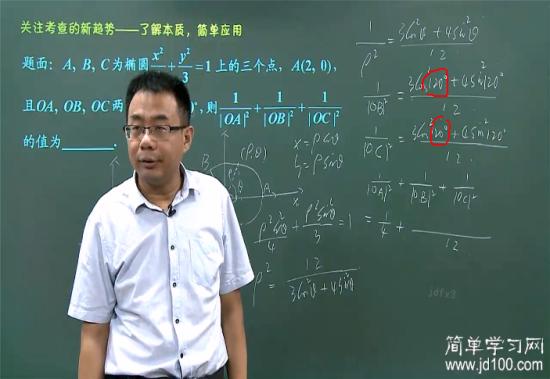 关注考查的新趋势——了解本质,简单应用
题面:A,B,C为椭圆x²/4+y²/3=1上的三个点,A(2,0),
且OA,OB,OC两 ,则1/|OA|²+1/|OB|²+1/|OC|²
的值为______.
(ρ,θ)
B
x
x=ρcosθ
y=ρsinθ
ρ²cos²θ/4+ρ²sin²θ/3=1
ρ²=12/3cos²θ+4sin²θ
1/ρ²=3cos²θ+4sin²θ/12
1/|OB|²=3cos²120°+4sin²120°/12
1/|OC|²=3cos²120°+4sin²120°/12
1/|OA|²+1/|OB|²+1/|OC|²
=1/4+ /12
简单学习网
www.jd100.com